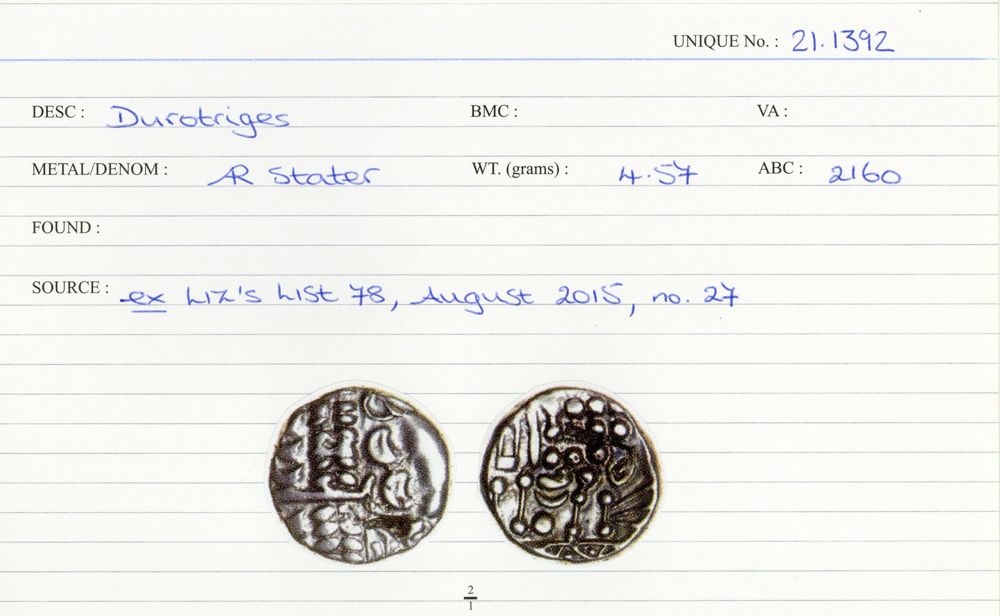 UNIQUE No. : 21.1392
DESC : Durotriges BMC : VA :
METAL/DENOM : AR Stater WT. (grams) : 4.57 ABC : 2160
FOUND :
SOURCE : ex Liz's List 78, August 2015, no. 27
2
1